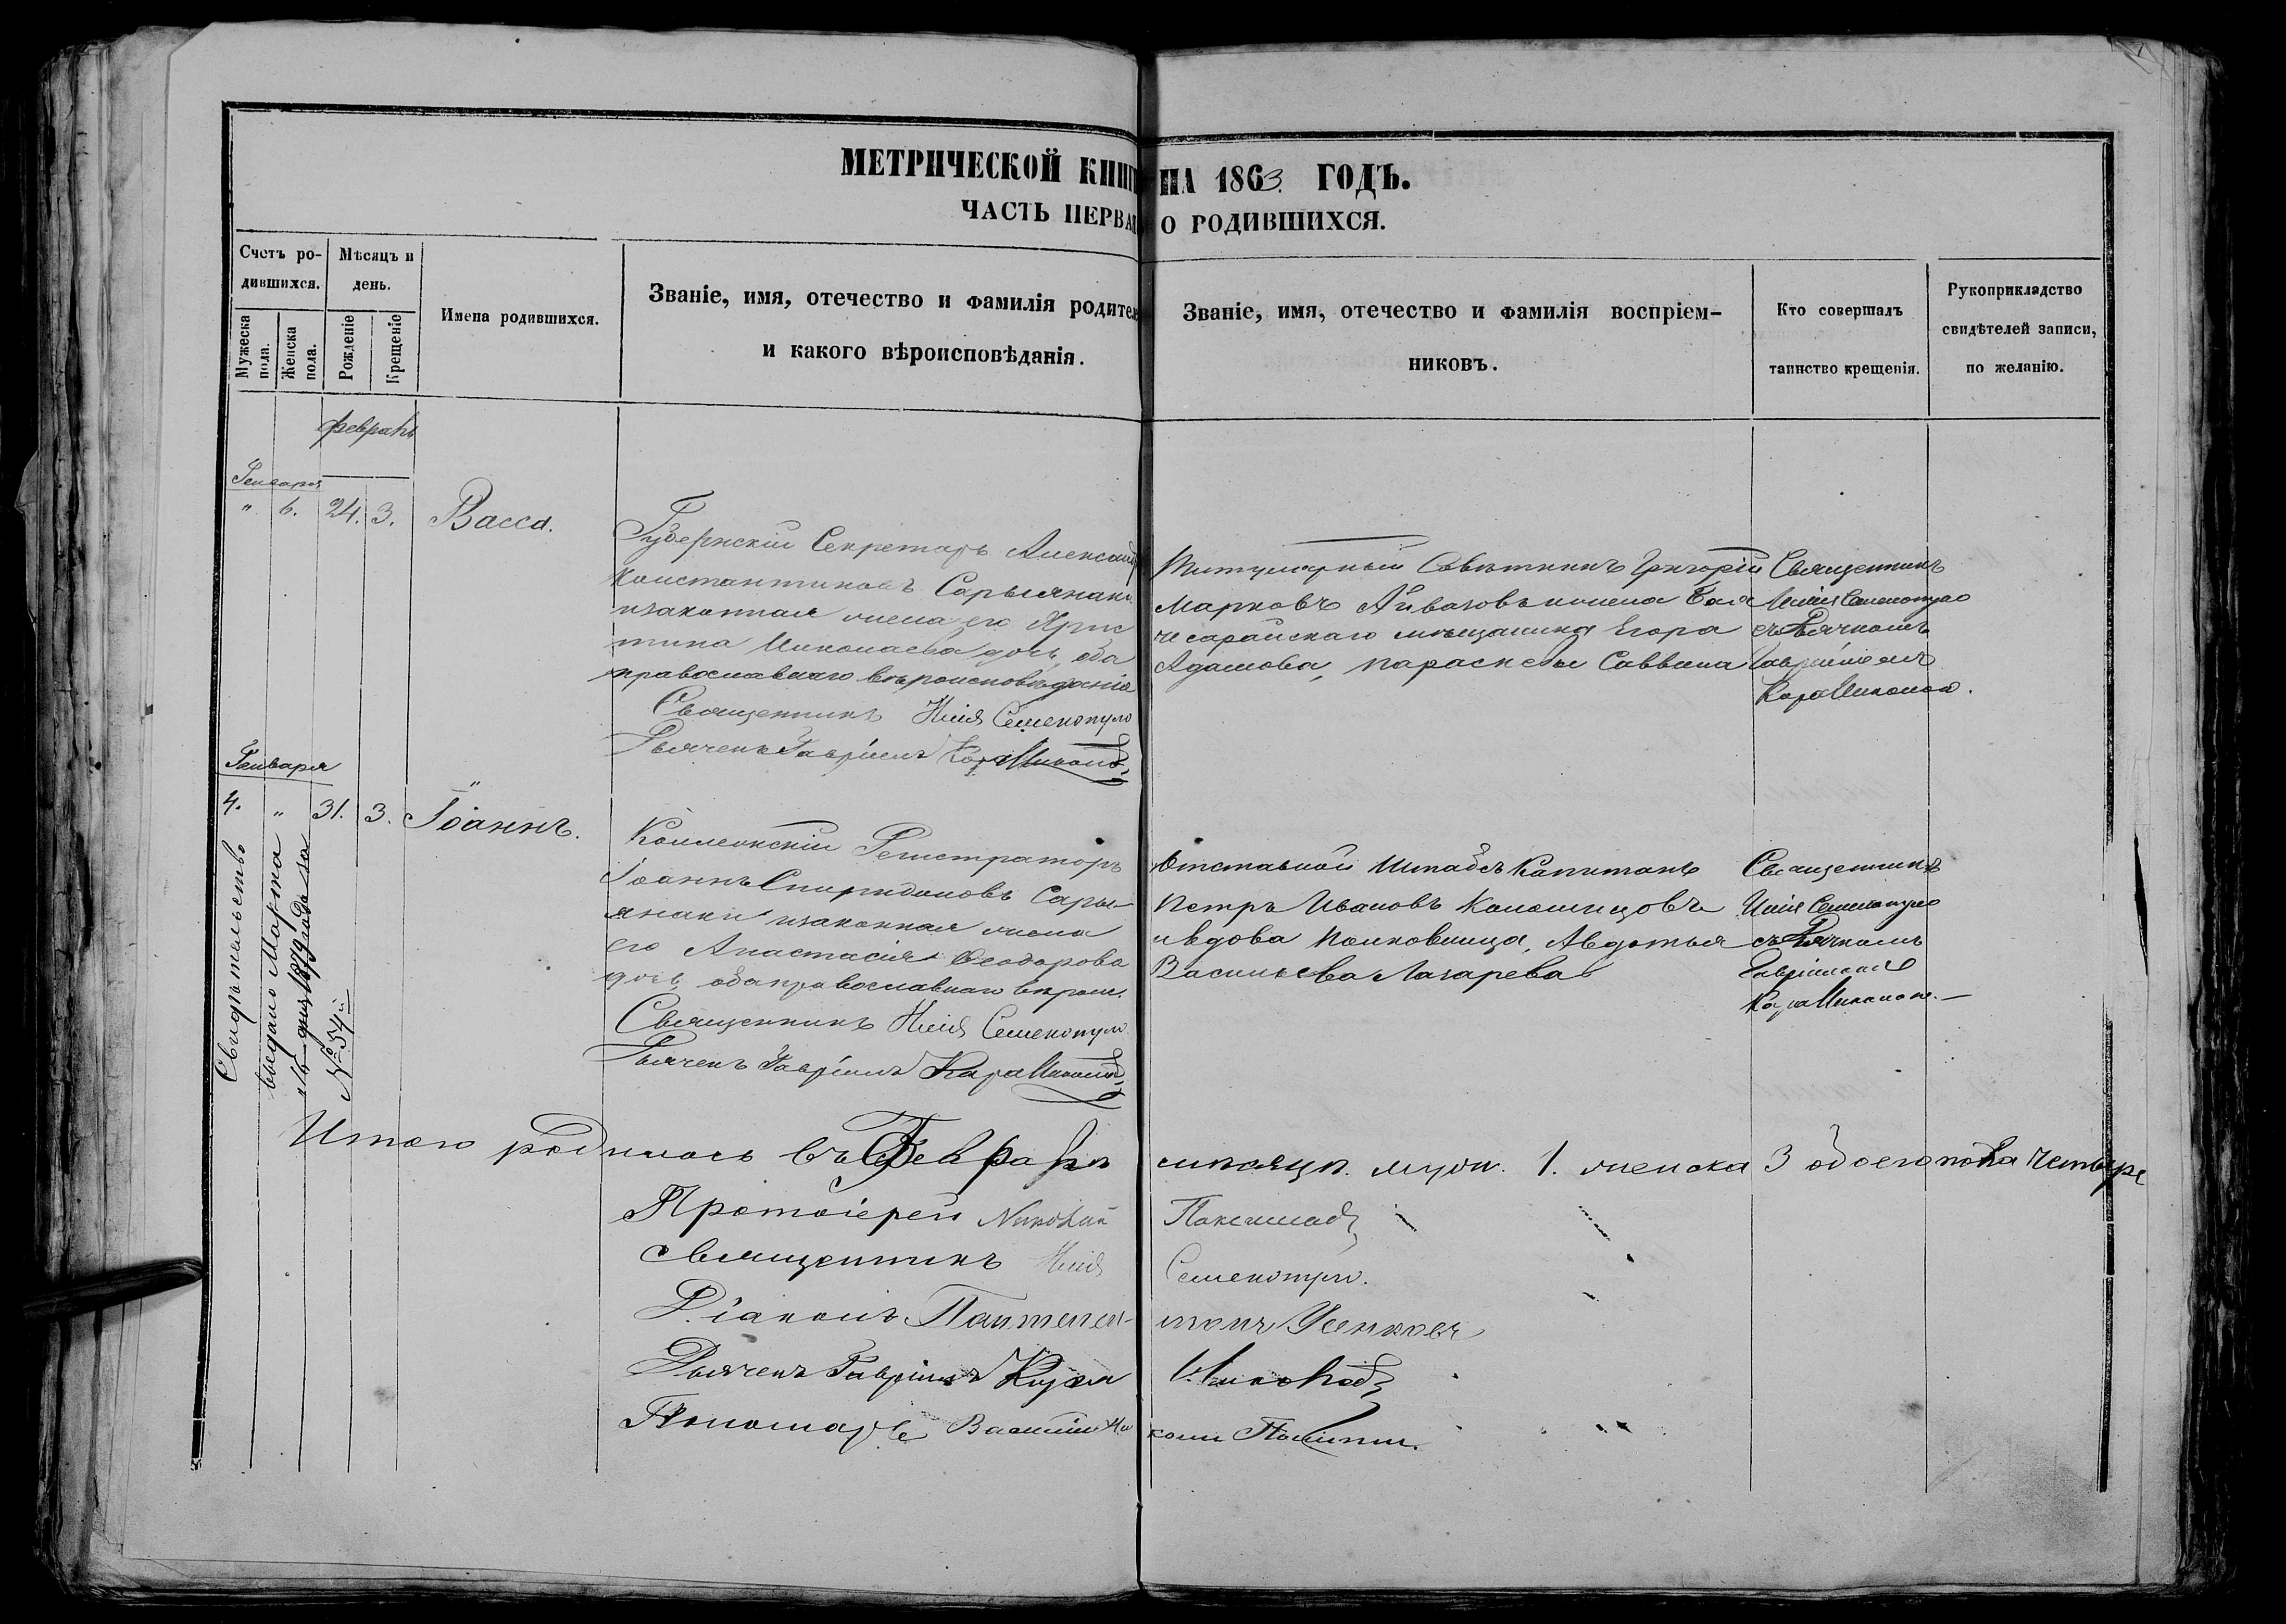 МЕТРИЧЕСКОЙ КНИГ
НА 1863. ГОДЪ.
ЧАСТЬ ПЕРВАЯ
О РОДИВШИХСЯ.
Счетъ ро-
дившихся.
Мѣсяцъ и
день.
Мужеска
пола.
Женска
пола.
Рожденіе
Крещеніе
Имена родившихся.
Званіе, имя, отечество и фамилія родител
и какого вѣроисповѣданія.
Званіе, имя, отечество и фамилія воспріем-
никовъ.
Кто совершалъ
таинство крещенія.
Рукоприкладство
свидѣтелей записи,
по желанію.
февраль
Генваря
" 6. 24. 3. Васса.
Губернскій Секретарь Александ
Константиновъ Сарыянаки
изаконная жена его Хрис
тина Николаева дочь, оба
православнаго вѣроисповѣданія
Священникъ Илія Семенопуло
Дьячекъ Гавріилъ КараНикола
Титулярный Совѣтникъ Григорій
Марковъ Айвазовъ ижена Бах
чесарайскаго мѣщанина Егора
Адамова, Параскева Саввина
Священникъ
Илія Семенопуло
съ Дьячкомъ
Гавріиломъ
КараНикола.
Генваря
4. " 31. 3. Іоаннъ.
Коллежскій Регистраторъ
Іоаннъ Спиридоновъ Сары-
янаки изаконная жена
его Анастасія Ѳеодорова
дочь, оба православнаго вѣроис.
Священникъ Илія Семенопуло
Дьячекъ Гавріилъ КараНикола
Отставной Штабсъ Капитанъ
Петръ Ивановъ Коломийцовъ
ивдова Полковница, Авдотья
Васильева Лазарева
Священникъ
Илія Семенопуло
съ Дьячкомъ
Гавріиломъ
КараНикола.
Свидѣтельство
выедано Марта
дня 1879 года за
№ 54й
Итого родилось въ Февралѣ мѣсяцѣ. муж. 1. женска 3 обоего пола четыре
Протоіерей Николай
Священникъ Илія Семенопуло.
Діаконъ Пантелей-
монъ
Дьячекъ Гавріилъ Кара Никола
Пономарь Василій Ни